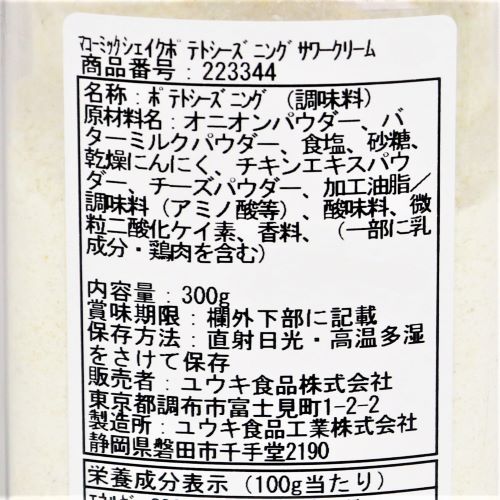 マコーミックシェイクポテトシーズニングサワークリーム
商品番号：223344
名称：ポテトシーズニング（調味料）
原材料名：オニオンパウダー、バ
ターミルクパウダー、食塩、砂糖、
乾燥にんにく、チキンエキスパウ
ダー、チーズパウダー、加工油脂／
調味料（アミノ酸等）、酸味料、微
粒二酸化ケイ素、香料、（一部に乳
成分・鶏肉を含む）
内容量：300g
賞味期限：欄外下部に記載
保存方法：直射日光・高温多湿
をさけて保存
販売者：ユウキ食品株式会社
東京都調布市富士見町1-2-2
製造所：ユウキ食品工業株式会社
静岡県磐田市千手堂2190
栄養成分表示（100g当たり）